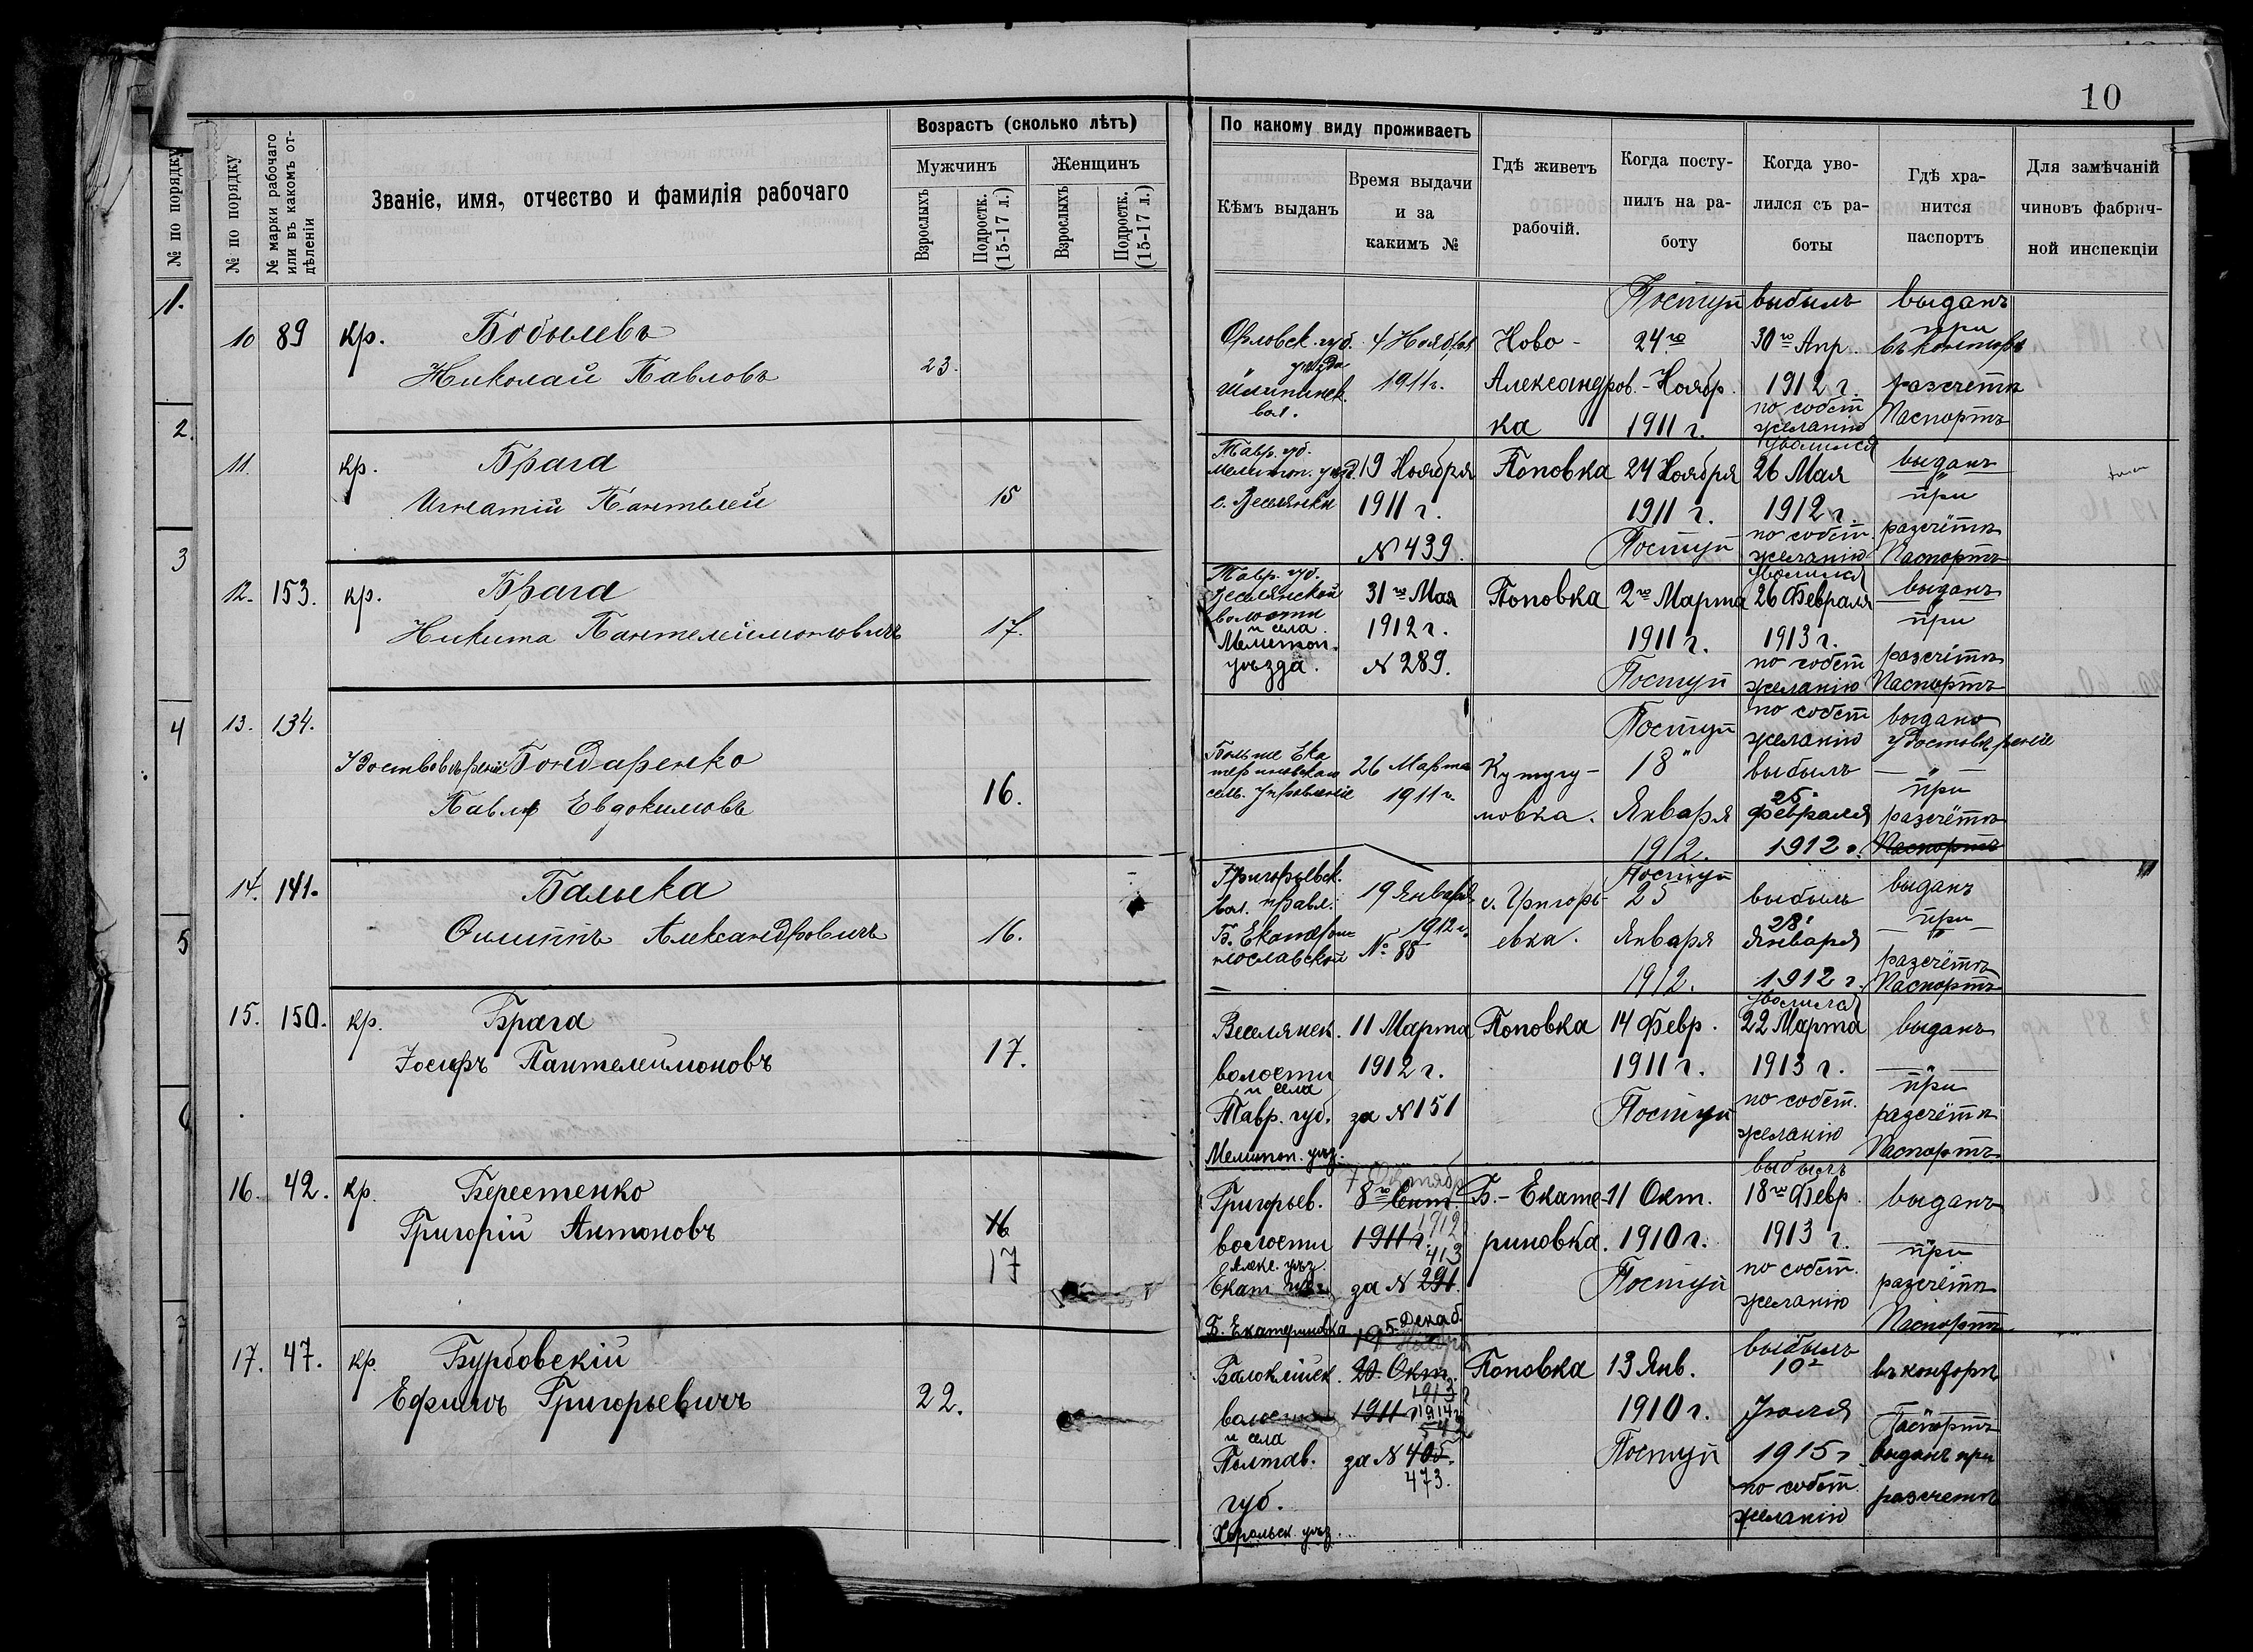 10
№ по порядку
№ по порядку
№ марки рабочаго или въ какомъ отдѣленіи
Званіе, имя, отчество и фамилія рабочаго
Возрастъ (сколько лѣтъ)
Мужчинъ
Женщинъ
Взрослыхъ
Подростк. (15-17 л.)
Взрослыхъ
Подростк. (15-17 л.)
По какому виду проживаетъ
Кѣмъ выданъ
Время выдачи
и за
какимъ №
Гдѣ живетъ
рабочій.
Когда посту-
пилъ на ра-
боту
Когда уво-
лился съ ра-
боты
Гдѣ хра-
нится
паспортъ
Для замѣчаній
чиновъ фабрич-
ной инспекціи
1.
2.
3
4
5
6
7
10 89 кр. Бобылевъ
Николай Павловъ
23.
Орловск. губ.
уѣзда
вол.
4 Ноября
1911 г.
Ново-
Александров-
ка
Поступ
24го
Ноябр.
1911 г.
выбылъ
30го Апр.
1912 г.
по собст
желанію
выданъ
при
въ конторѣ
разсчетѣ
Паспортъ
11. кр. Брага
Игнатій Пантелей
15
Тавр. губ.
Мелитоп. уѣзд.
с. Веселянки
19 Ноября
1911 г.
№ 439.
Поповка
24 Ноября
1911 г.
Поступ
уволился
26 Мая
1912 г.
по собст
желанію
выданъ
при
разсчётѣ
Паспортъ
12. 153. кр. Брага
Никита Пантелеимоновичъ
17.
Тавр. губ.
Веселянской
волости
и села
Мелитоп.
уѣзда.
31го Мая
1912 г.
№ 289.
Поповка
2го Марта
1911 г.
Поступ
уволился
26 Февраля
1913 г.
по собст
желанію
выданъ
при
разсчётѣ
Паспортъ
13. 134.
Удостовѣреніе Бондаренко
Павлъ Евдокимовъ
16.
Больше Ека
териновское
сель. Управленіе
26 Марта
1911 г.
Кутугу-
мовка.
Поступ
18"
Января
1912.
по собст
желанію
выбылъ
25
Февраля
1912 г.
выдано
удостовѣреніе
при
разсчётѣ
Паспортъ
14. 141. Балыка
Филиппъ Александровичъ
16.
Григорьевск.
вол. правл.
Б. Екатери-
нославской
19 Января
1912 г.
№ 85
с. Григорь-
евка.
Поступ
25"
Января
1912.
выбылъ
28
Января
1912 г.
выданъ
при
разсчётѣ
Паспортъ
15. 150. кр. Брага
Іосифъ Пантелеимоновъ
17.
Веселянск.
волости
и села
Тавр. губ.
Мелитоп. уѣз.
11 Марта
1912 г.
за № 151
Поповка
14 Февр.
1911 г.
Поступ
уволился
22 Марта
1913 г.
по собст.
желанію
выданъ
при
разсчётѣ
Паспортъ
16. 42. кр. Берестенко
Григорій Антоновъ
16
17
Григорьев.
волости
Алекс. уѣз.
Екат. губ.
Б. Екатериновка
7 Октябр
8го Сент.
1912
1911 г.
413
за № 291.
Б.-Екате-
риновка.
11 Окт.
1910 г.
Поступ
выбылъ
18го Февр.
1913 г.
по собст.
желанію
выданъ
при
разсчётѣ
Паспортъ
17. 47. кр. Бурбовскій
Ефимъ Григорьевичъ
22.
Балоклійск.
волости
и села
Полтав.
губ.
Хорольск. уѣз.
5 Декаб.
20 Окт.
1913
1911 г. 1914 г.
543
за № 405.
473.
Поповка
13 Янв.
1910 г.
Поступ
выбылъ
10г
Іюля
1915 г
по собст.
желанію
въ конторѣ
Паспортъ
выданъ при
разсчетѣ